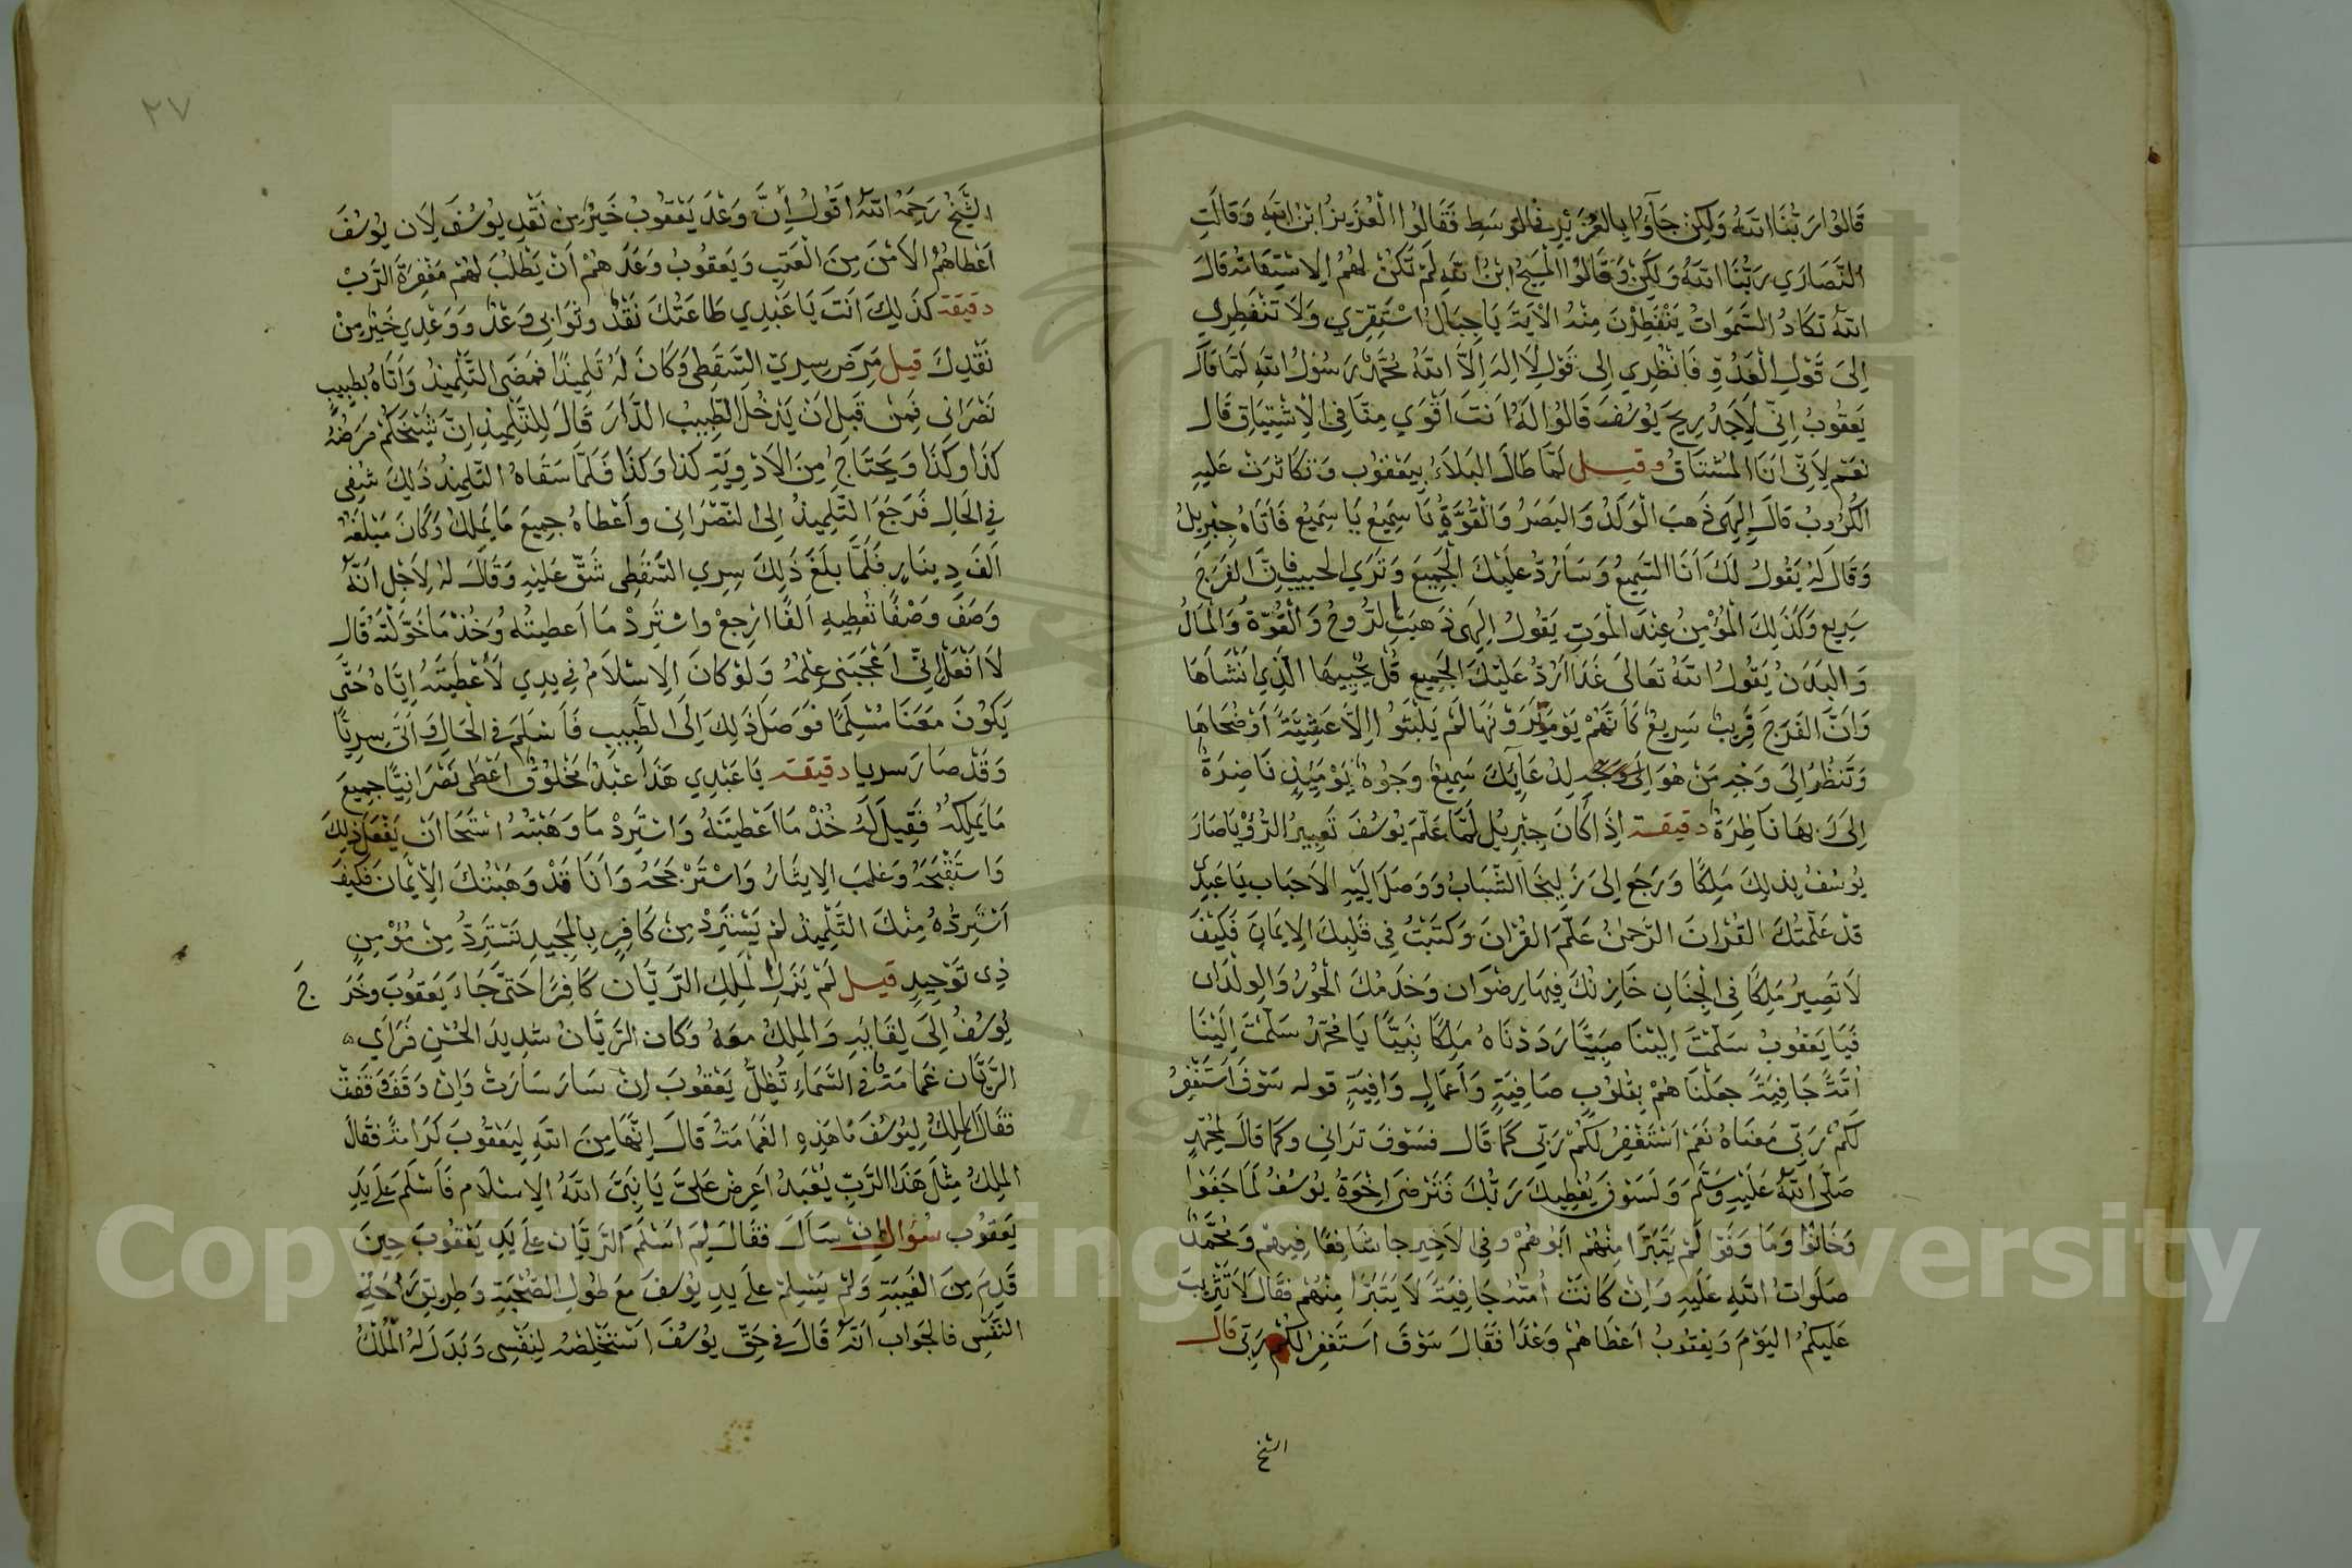 قَالُوا رَبُّنَا اللَّهُ وَلَكِنْ جَآؤُا بِالعُزَيْرِ فِي الوَسَطِ فَقَالُوا الْعُزَيْرُ ابْنُ اللَّهِ وَقَالَتِ
النَّصَارَي رَبُّنَا اللَّهُ وَلَكِنْ وَقَالُوا الْمَسِيحُ ابْنُ اللَّهِ لَمْ تَكُنْ لَهُمُ الاسْتِقَامَةُ قَالَ
اللَّهُ تَكَادُ السَّمَوَاتُ يَنْفَطِرْنَ مِنْهُ الآيَةَ يَا جِبَالُ اسْتَقِرِّي وَلَا تَنْفَطِرِي
اِلَى قَوْلِ الْعَدُوِّ فَانْظُرِي اِلَى قَوْلِ لَا اِلهَ اِلَّا اللَّهُ مُحَمَّدٌ رَسُولُ اللَّهِ لَمَّا قَالَ
يَعْقُوبُ اِنِّي لَاَجِدُ رِيحَ يُوسُفَ قَالُوا لَهُ اَنْتَ اَقْوَي مِنَّا فِي الْاِشْتِيَاقِ قَال
نَعَمْ لِاَنِّي اَنَا المُشْتَاقُ وقيل لَمَّا طَالَ البَلَاءُ بِيَعْقُوبَ وَتَكَاثَرَتْ عَلَيهِ
الكُرُوبُ قَالَ اِلهِي ذَهَبَ الْوَلَدُ وَالبَصَرُ وَالْقُوَّةُ يَا سَمِيعُ يَا سَمِيعُ فَاَتَاهُ جِبْرِيلُ
وَقَالَ لَهُ يَقُولُ لَكَ اَنَا السَّمِيعُ وَسَاَرُدُّ عَلَيْكَ الْجَمِيعَ وَتَرَي الحَبِيبَ فَاِنَّ الفَرَجَ
سَرِيع وَكَذَلِكَ الْمُؤْمِنُ عِنْدَ الْمَوتِ يَقُولُ اِلهِي ذَهَبَتِ الرُّوحُ وَالْقُوَّةُ وَالْمَالُ
وَالبَدَنُ يَقُولُ اللَّهُ تَعَالَى غَدًا اَرُدُّ عَلَيْكَ الجَمِيع قُلْ يُحْيِيهَا الَّذِي اَنْشَاَهَا
وَاَنَّ الفَرَجَ قَرِيبٌ سَرِيعٌ كَاَنَّهُمْ يَوْمَ يَرَوْنَهَا لَمْ يَلْبَثُوا اِلَّا عَشِيَّةً اَوْ ضُحَاهَا
وَتَنْظُرُ اِلَى وَجْهِ مَنْ هُوَ لِدُعَائِكَ سَمِيعٌ وُجُوهٌ يَوْمَئِذٍ نَاضِرَةٌ
اِلَى رَبِّهَا نَاظِرَةٌ دقيقة اِذَا كَانَ جِبْرِيلُ لَمَّا عَلَّمَ يُوسُفَ تَعْبِيرَ الرُّؤْيَا صَارَ
يُوسُفُ بِذلِكَ مَلِكًا وَرَجَعَ اِلَى زُلَيْخَا الشَّبَابُ وَوَصَلَ اِلَيْهِ الاَحبَاب يَا عَبْدِي
قَدْ عَلَّمْتُكَ القُرْانَ الرَّحمنُ عَلَّمَ القُرْانَ وَكَتَبْتُ فِي قَلْبِكَ الاِيمَانَ فَكَيْفَ
لَا تَصِيرُ مَلِكًا فِي الْجِنَانِ خَازِنُكَ فِيهَا رِضْوَان وَخَدَمُكَ الْحُورُ وَالوِلْدَان
فَيَا يَعْقُوبُ سَلَّمْتَ اِلَيْنَا صَبِيًّا رَدَدْنَاهُ مَلِكًا نَبِيًّا يَا مُحَمَّدُ سَلَّمْتَ اِلَيْنَا
اُمَّةً جَافِيَةً جَعَلْنَاهُمْ بِقُلُوبٍ صَافِيَةٍ وَاَعمَالٍ وَافِيَةٍ قوله سَوْفَ اَسْتَغْفِرُ
لَكُمْ رَبِّي مَعْنَاهُ نَعَمْ اَسْتَغْفِرُ لَكُمْ رَبِّي كَمَا قَال فَسَوْفَ تَرَاني وكَمَا قَالَ لِمُحَمَّدٍ
صَلَّى اللَّهُ عَلَيْهِ وَسَلَّمَ وَلَسَوْفَ يُعْطِيكَ رَبُّكَ فَتَرْضَى اِخْوَةُ يُوسُفُ لَمَا جَفَوْا
وَخَانُوا وَمَا وَفَوْا لَمْ يَتَبَرَّا مِنْهُم اَبُوهُمْ وفي الاخِيرِ جا شَافِعًا فِيهِمْ وَمُحَمَّدٌ
صَلَوَاتُ اللَّهِ عَلَيهِ وَاِنْ كَانَتْ اُمَّتُهُ جَافِيَةً لَا يَتَبَرَّا مِنْهُم فَقَالَ لَا تَثْرِيبَ
عَلَيكُمُ اليَوْمَ وَيَعْقُوبُ اَعْطَاهُمْ وَعْدًا فَقَالَ سَوْفَ اَسْتَغْفِرُ لَكُمْ رَبِّي قَالَ
الشيخ
٢٧
الشَّيْخُ رَحِمَهُ اللَّهُ اَقُولُ اِنَّ وَعْدَ يَعْقُوبَ خَيْرٌ مِن نَقْدِ يُوسُفَ لِاَن يُوسُفَ
اَعْطَاهُمُ الاَمْنَ مِنَ الْعَتِبِ وَيَعقُوبُ وَعَدَهُمْ اَنْ يَطْلُبَ لَهُمْ مَغْفِرَةَ الرَّبِّ
دقيقة كَذَلِكَ اَنْتَ يَا عَبْدِي طَاعَتُكَ نَقْدٌ وثَوَابِي وَعْدٌ وَوَعْدِي خَيْرٌ مِنْ
نَقْدِكَ قيل مَرِضَ سِرِيّ السَّقَطِي وَكَانَ لَهُ تِلْمِيذٌ فَمَضَى التِّلْمِيذُ وَاَتَاهُ بِطَبِيبٍ
نَصْرَانِي فَمِنْ قَبلِ اَنْ يَدْخُلَ الطَّبِيبُ الدَّارَ قَالَ لِلتِّلْمِيذِ اِنَّ شَيْخَكُمْ مَرَضُهُ
كَذَا وكَذَا وَيَحْتَاجُ مِنَ الاَدْوِيَةِ كَذَا وَكَذَا فَلَمَّا سَقَاهُ التِّلْمِيذُ ذَلِكَ شُفِي
فِي الحَالِ فَرَجَعَ التِّلْمِيذُ اِلى النَّصْرَانِي واَعْطَاهُ جَمِيعَ مَا يَمْلِكُ وَكَانَ مَبْلَغُهُ
اَلفَ دِينَارٍ فَلَمَّا بلَغَ ذَلِكَ سِرِي السَّقَطِي شَقَّ عَلَيْهِ وَقَالَ لَهُ لِاَجْلِ اَنَّهُ
وَصَفَ وَصْفًا تُعْطِيهِ اَلفًا ارْجِعْ واسْتَرِدْ مَا اَعطَيتَهُ وَخُذْ مَا خَوَّلْتَهُ قَال
لَا اَفْعَلُ اِنِّي اَعْجَبَنِي عِلْمُهُ وَلَوْ كَانَ الاِسْلَامُ فِي يَدِي لَاَعْطَيْتُهُ اِيَّاهُ حَتَّى
يَكُونَ مَعَنَا مُسْلِمًا فَوَصَلَ ذَلِكَ اِلَى الطَّبِيبِ فَاَسْلَمَ فِي الْحَالِ وَاَتَى سِرِيًّا
وَقَدْ صَارَ سريا دقيقة يَا عَبْدِي هَذَا عَبْدٌ مَخْلُوقٌ اَعْطَى نَصْرَانِيًّا جَمِيعَ
مَا يَمْلِكُهُ فَقِيلَ لَهُ خُذْ مَا اَعْطَيْتَهُ وَاسْتَرِدْ مَا وَهَبْتَهُ اسْتَحَا اَنْ يَفْعَلَ ذلِكَ
وَاسْتَقْبَحَهُ وَغلَبَ الاِيثَارُ وَاسْتَرْجَحَهُ وَاَنَا قَدْ وَهَبْتُكَ الْاِيْمَانَ فَكَيفَ
اَسْتَرِدُّهُ مِنْكَ التِّلْمِيذُ لَمْ يَسْتَرِدْ مِنْ كَافِرٍ بِالْمَجِيدِ نَسْتَرِدُّ مِنْ مُؤْمِنٍ
ذِي تَوْحِيدٍ قيل لَمْ يَزَلِ الْمَلِكِ الرَّيَّان كَافِرًا حَتَّى جَاءَ يَعقُوبَ وخَرَ ج
يُوسُفُ اِلَى لِقَائِهِ وَالمَلِكُ مَعَهُ وَكَان الرَّيَّانُ شَدِيدَ الحُسْنِ فَرَاَي
الرَّيَّان غَمَامَةً فِي السَّمَاءِ تُظِلُّ يَعْقُوبَ اِنْ سَارَ سَارَتْ وَاِنْ وَقَفَ وَقَفَتْ
فَقَالَ المَلِكُ لِيُوسُفَ مَا هَذِهِ الغَمَامَةُ قَالَ اِنَّهَا مِنَ اللَّهِ لِيَعْقُوبَ كَرَامَةً فَقَالَ
المَلِكُ مِثْلُ هَذَا الرَّبِّ يُعْبَدُ اَعرِضْ عَلَيَّ يَا نَبِيَّ اللَّهُ الاِسْلَام فَاَسْلَمَ عَلَى يَدِ
يَعقُوب سُؤال اِنْ سَاَلَ فَقَالَ لِمَ اَسْلَمَ الرَّيَّان عَلَى يَدِ يَعْقُوبَ حِينَ
قَدِمَ مِنَ الغَيبَةِ وَلَمْ يُسْلِمْ عَلَى يَدِ يُوسُفَ مَعَ طُولِ الصُّحْبَةِ وَطَرِيقِ رَاحَةِ
النَّفْسِ فالجَوَاب اَنَّهُ قَالَ فِي حَقِّ يُوسُفَ اَسْتَخْلِصْهُ لِنَفْسِي وَبَدَلَ لَهُ الْمُلْكُ
Copyright © King Saud University